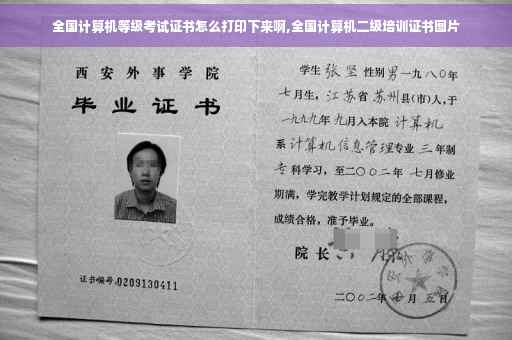 全国计算机等级考试证书怎么打印下来啊,全国计算机二级培训证书图片
西安外事学院
毕业证书
证书编号:0209130411
学生 张坚 性别男一九八〇年
七月生，江苏省苏州县(市)人,于
一九九九年九月入本院 计算机
系 计算机信息管理专业 三 年制
专科学习，至二〇〇二年 七月修业
期满，学完教学计划规定的全部课程，
成绩合格，准予毕业。
院长
二〇〇二年 月 五日